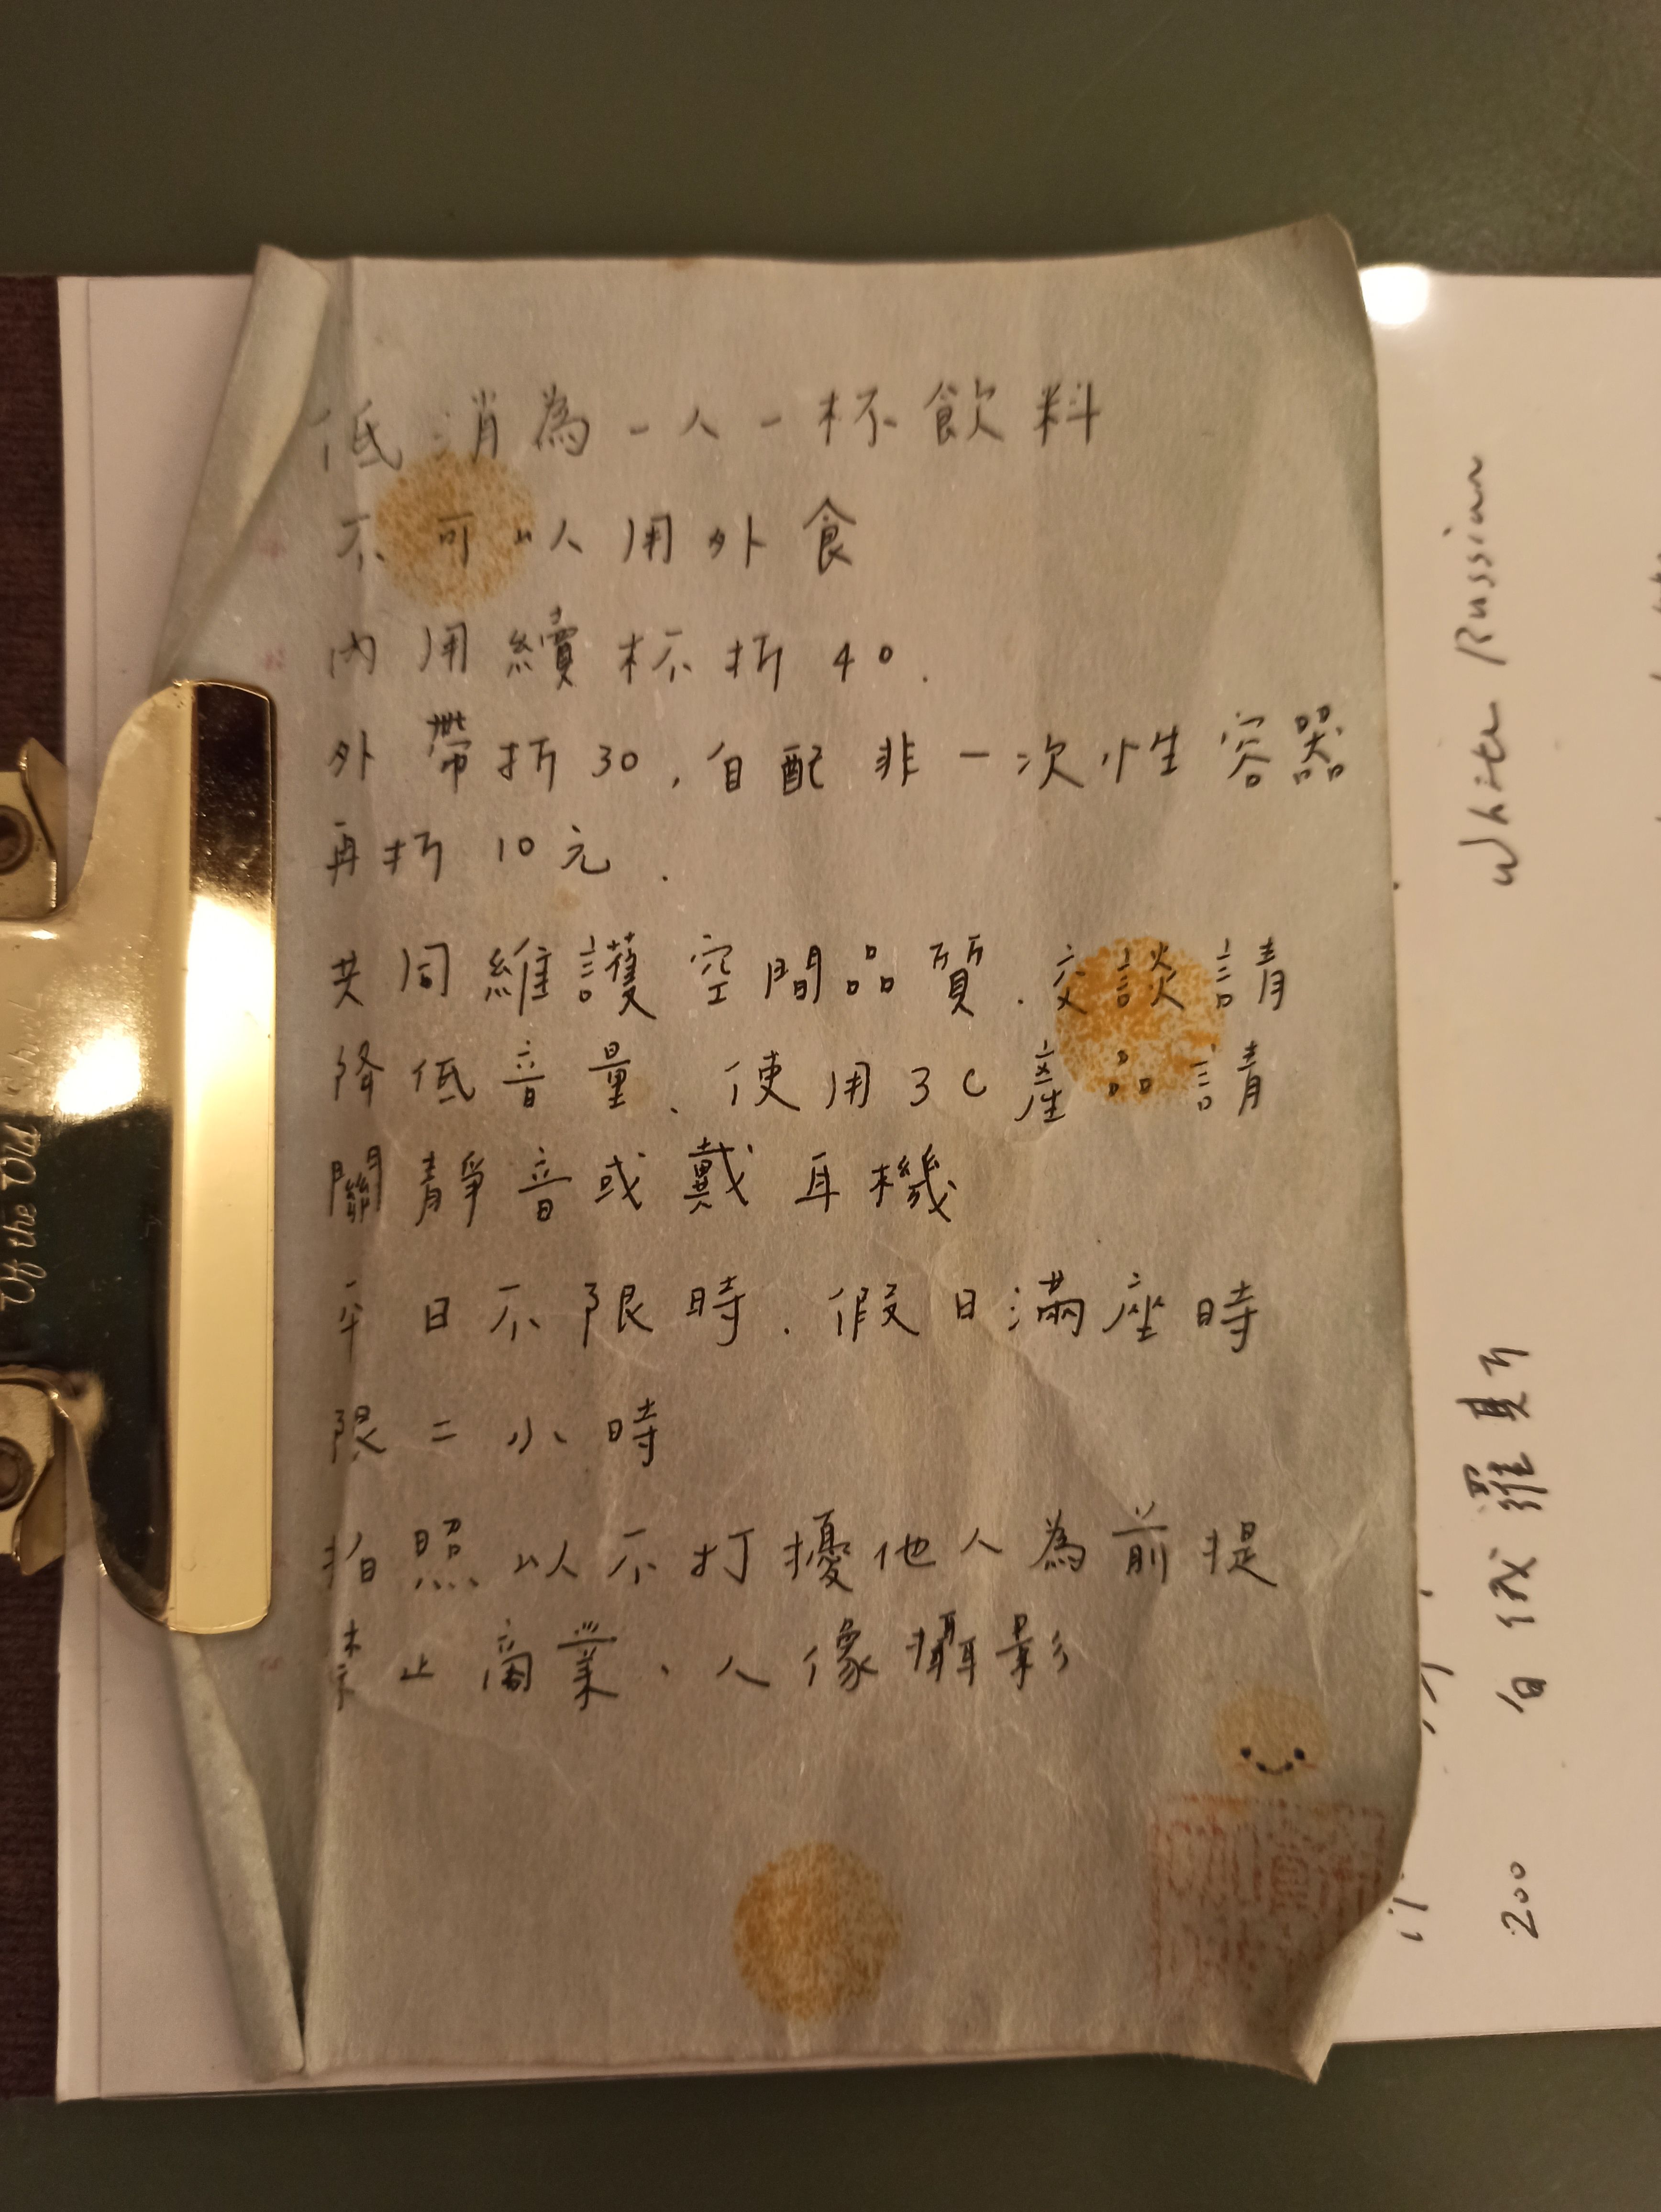 低消為一人一杯飲料
不可以用外食
內用續杯折40.
外帶折30,自配非一次性容器
再折10元.
共同維護空間品質.交談請
降低音量、使用3C產品請
關靜音或戴耳機
平日不限時.假日滿座時
限二小時
拍照以不打擾他人為前提
禁止商業、人像攝影
White Russian
200 白俄羅斯
Of the Old